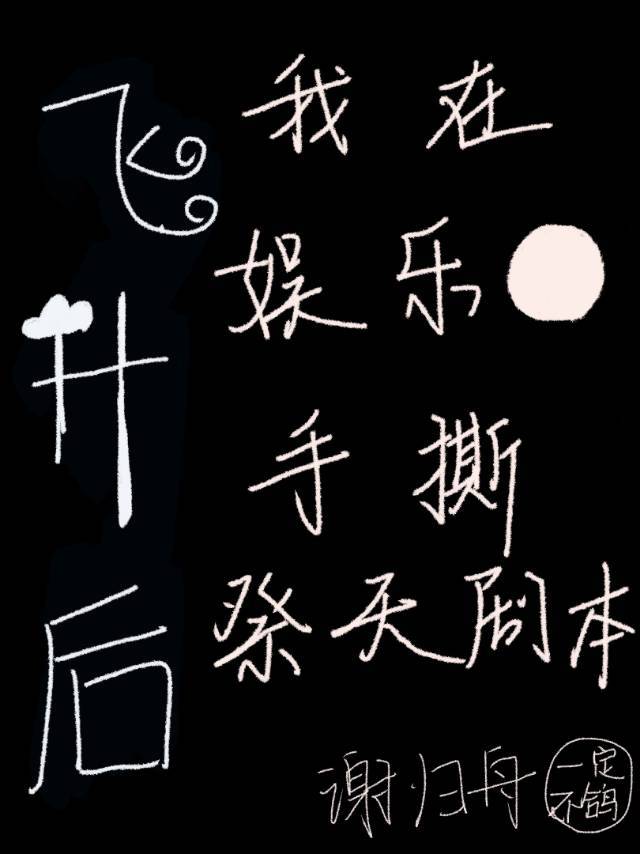 飞升后
我在
娱乐
手撕
祭天剧本
谢归舟
一定
不鸽